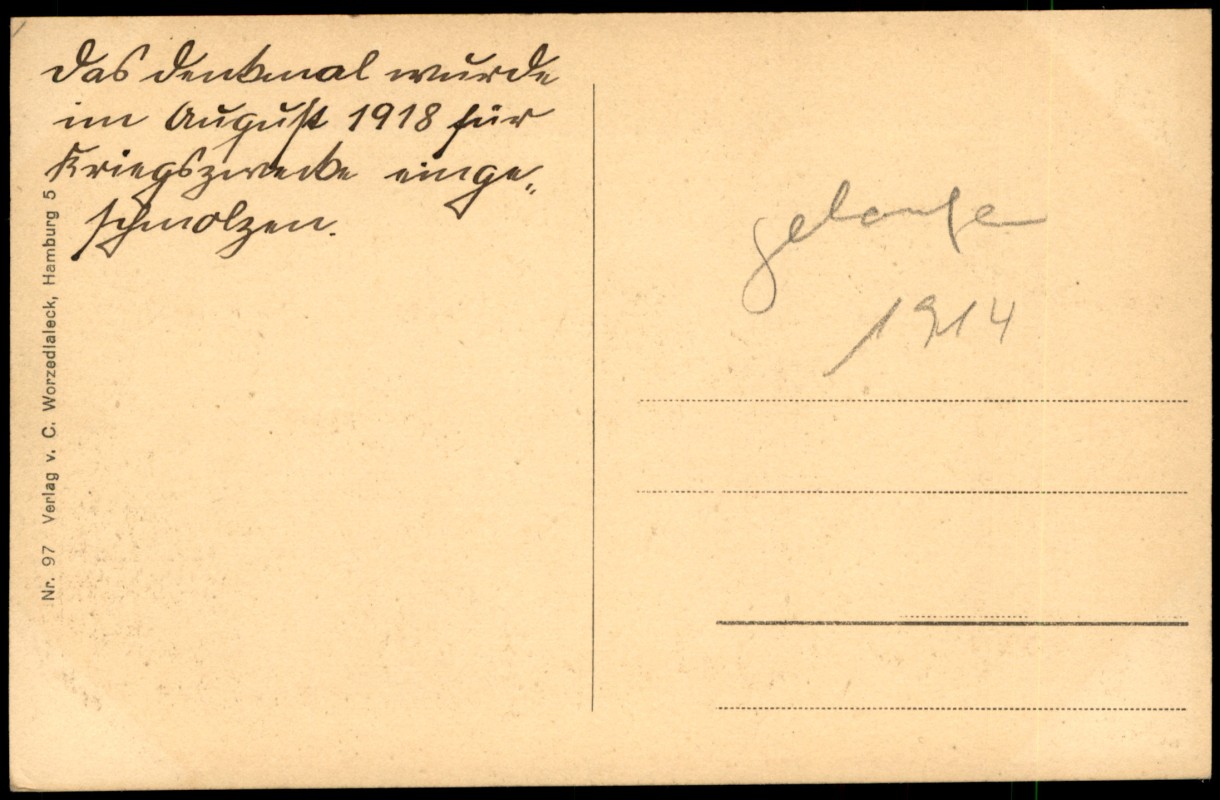 Das Denkmal wurde
im August 1918 für
Kriegszwecke einge„
schmolzen.
Nr. 97 Verlag v. C. Worzedialeck, Hamburg 5
1914